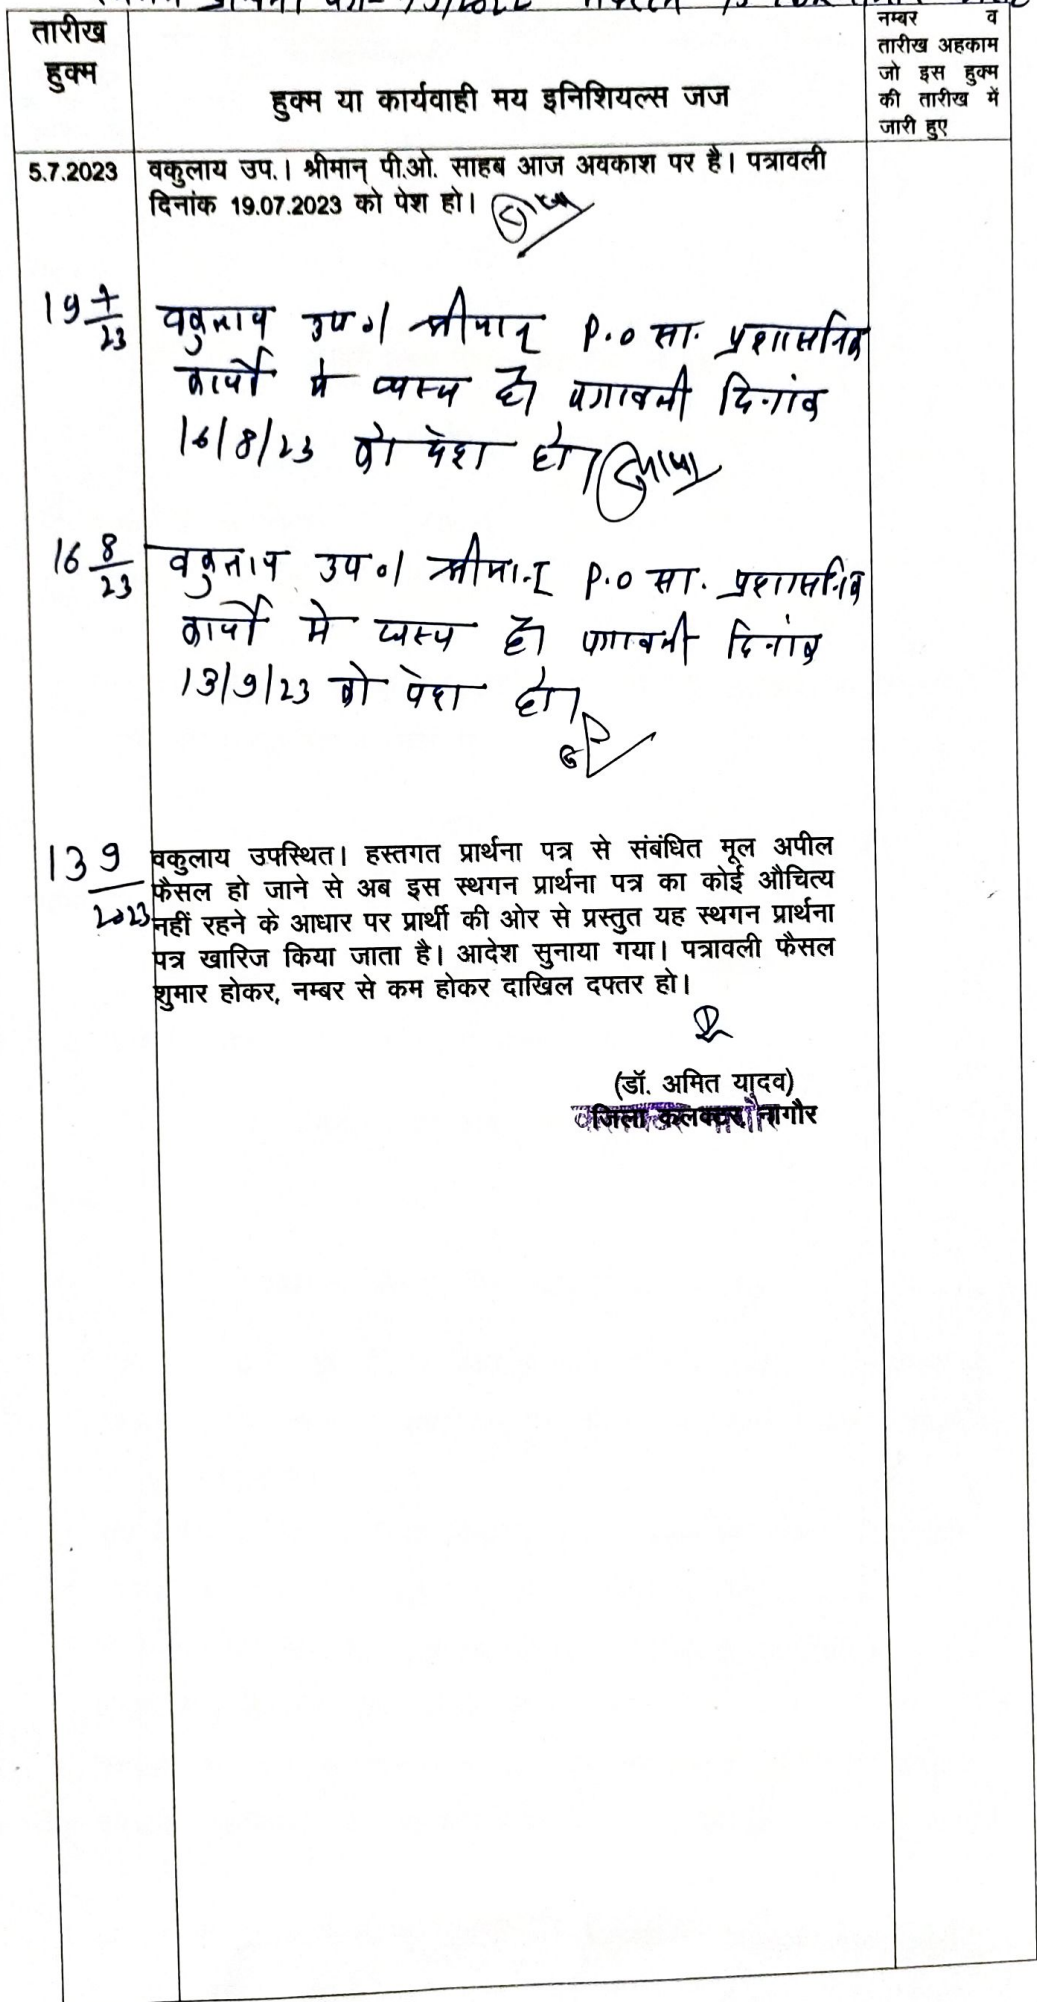 तारीख
हुक्म
हुक्म या कार्यवाही मय इनिशियल्स जज
नम्बर व
तारीख अहकाम
जो इस हुक्म
की तारीख में
जारी हुए
5.7.2023 वकुलाय उप.। श्रीमान् पी.ओ. साहब आज अवकाश पर है। पत्रावली
दिनांक 19.07.2023 को पेश हो।
19 7/23 वकुलाय उप०। श्रीमान् P.O सा. प्रशासनिक
कार्यों मे व्यस्त है। पत्रावली दिनांक
16/8/23 को पेश हो।
16 8/23 वकुलाय उप०। श्रीमान् P.O सा. प्रशासनिक
कार्यों मे व्यस्त है। पत्रावली दिनांक
13/9/23 को पेश हो।
13 9/2023 वकुलाय उपस्थित। हस्तगत प्रार्थना पत्र से संबंधित मूल अपील
फैसल हो जाने से अब इस स्थगन प्रार्थना पत्र का कोई औचित्य
नहीं रहने के आधार पर प्रार्थी की ओर से प्रस्तुत यह स्थगन प्रार्थना
पत्र खारिज किया जाता है। आदेश सुनाया गया। पत्रावली फैसल
शुमार होकर, नम्बर से कम होकर दाखिल दफ्तर हो।
(डॉ. अमित यादव)
जिला कलक्टर, नागौर